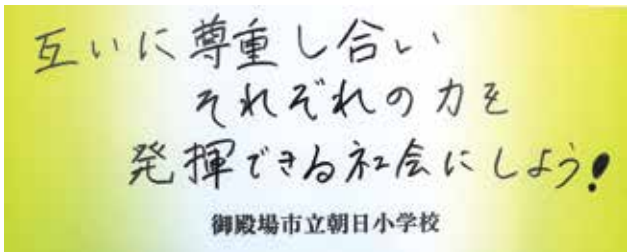 互いに尊重し合い
それぞれの力を
発揮できる社会にしよう!
御殿場市立朝日小学校